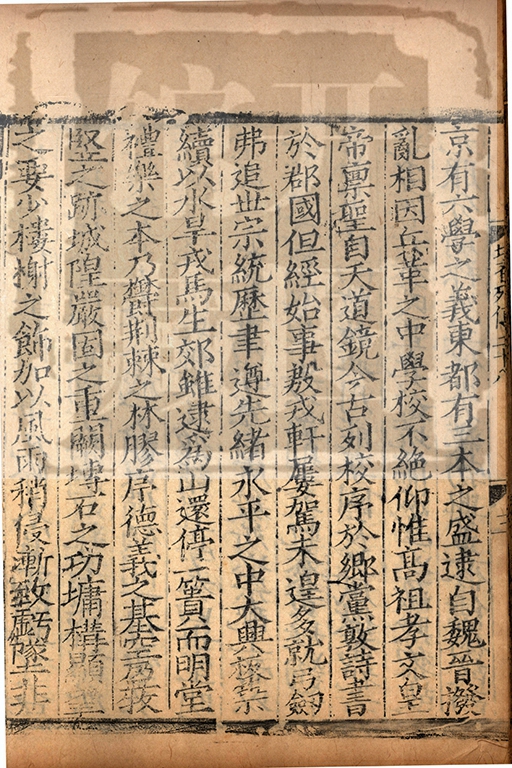 京有六學之義東都有三本之盛逮自魏晉潑
亂相因兵革之中學校不絶仰惟髙祖孝文皇
帝稟聖自天道鏡今古列校序於鄉黨敦詩書
於郡國但經始事殷戎軒屢駕未遑多就弓劔
弗追世宗統歷聿遵先緒永平之中大興板築
續以水旱戎馬生郊雖逮爲山還停一簣而明堂
禮樂之本乃鬱荆棘之林膠序德義之基空爲牧
竪之跡城隍嚴固之重闕塼石之功墉構顯望
之要少樓榭之飾加以風雨稍侵漸致虧墜非